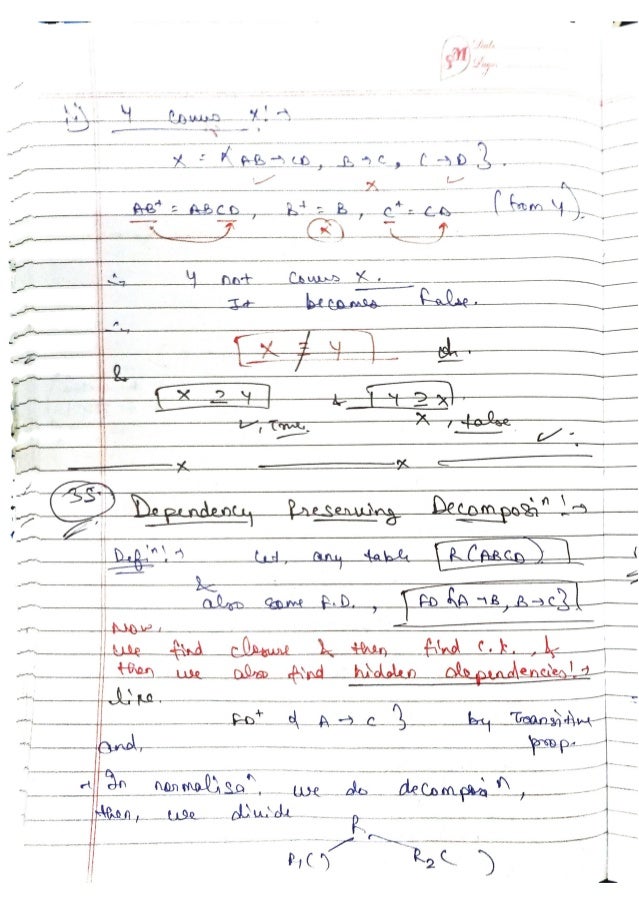 Date
Page
ii) Y covers X! →
X = { AB → CD, B → C, C → D }.
✓ × ✓
AB⁺ = ABCD, B⁺ = B, C⁺ = CD (from Y)
∴ Y not covers X.
It becomes false.
∴
X ≢ Y
&
X ⊇ Y & Y ⊇ X
✓, True. × , false
x x
35. Dependency Preserving Decomposiⁿ! →
Defiⁿ! → Let, any table R(ABCD)
&
also some F.D., FD {A → B, B → C}
Now,
we find closure & then find C.K., &
then we also find hidden dependencies! →
like.
FD⁺ { A → C } by Transitive
and, prop.
→ In normalisaⁿ, we do decomposiⁿ,
then, we divide
R
R₁( ) R₂( )